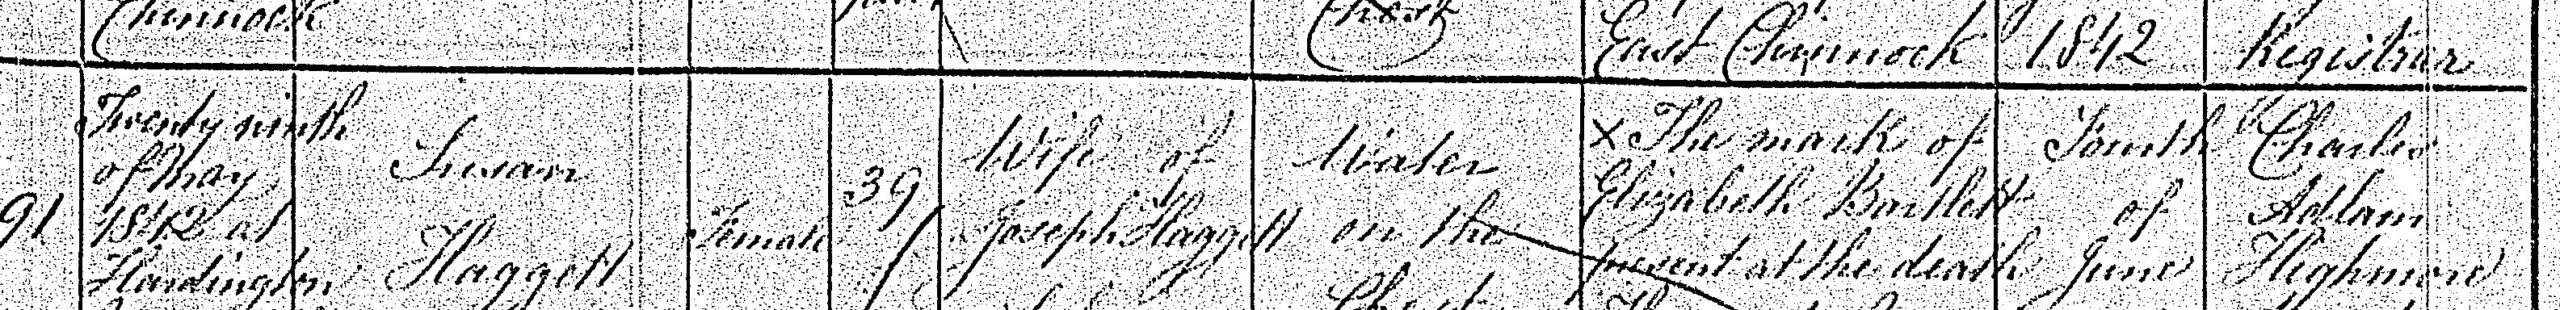 Chinnock
Chest
East Chinnock
1842
Registrar
91
Twenty ninth
of May
1842 at
Hardington
Susan
Haggett
Female
39
Wife of
Joseph Haggett
Water
on the
Chest
X The mark of
Elizabeth Bartlett
present at the death
Fourth
of
June
Charles
Adlam
Highmore